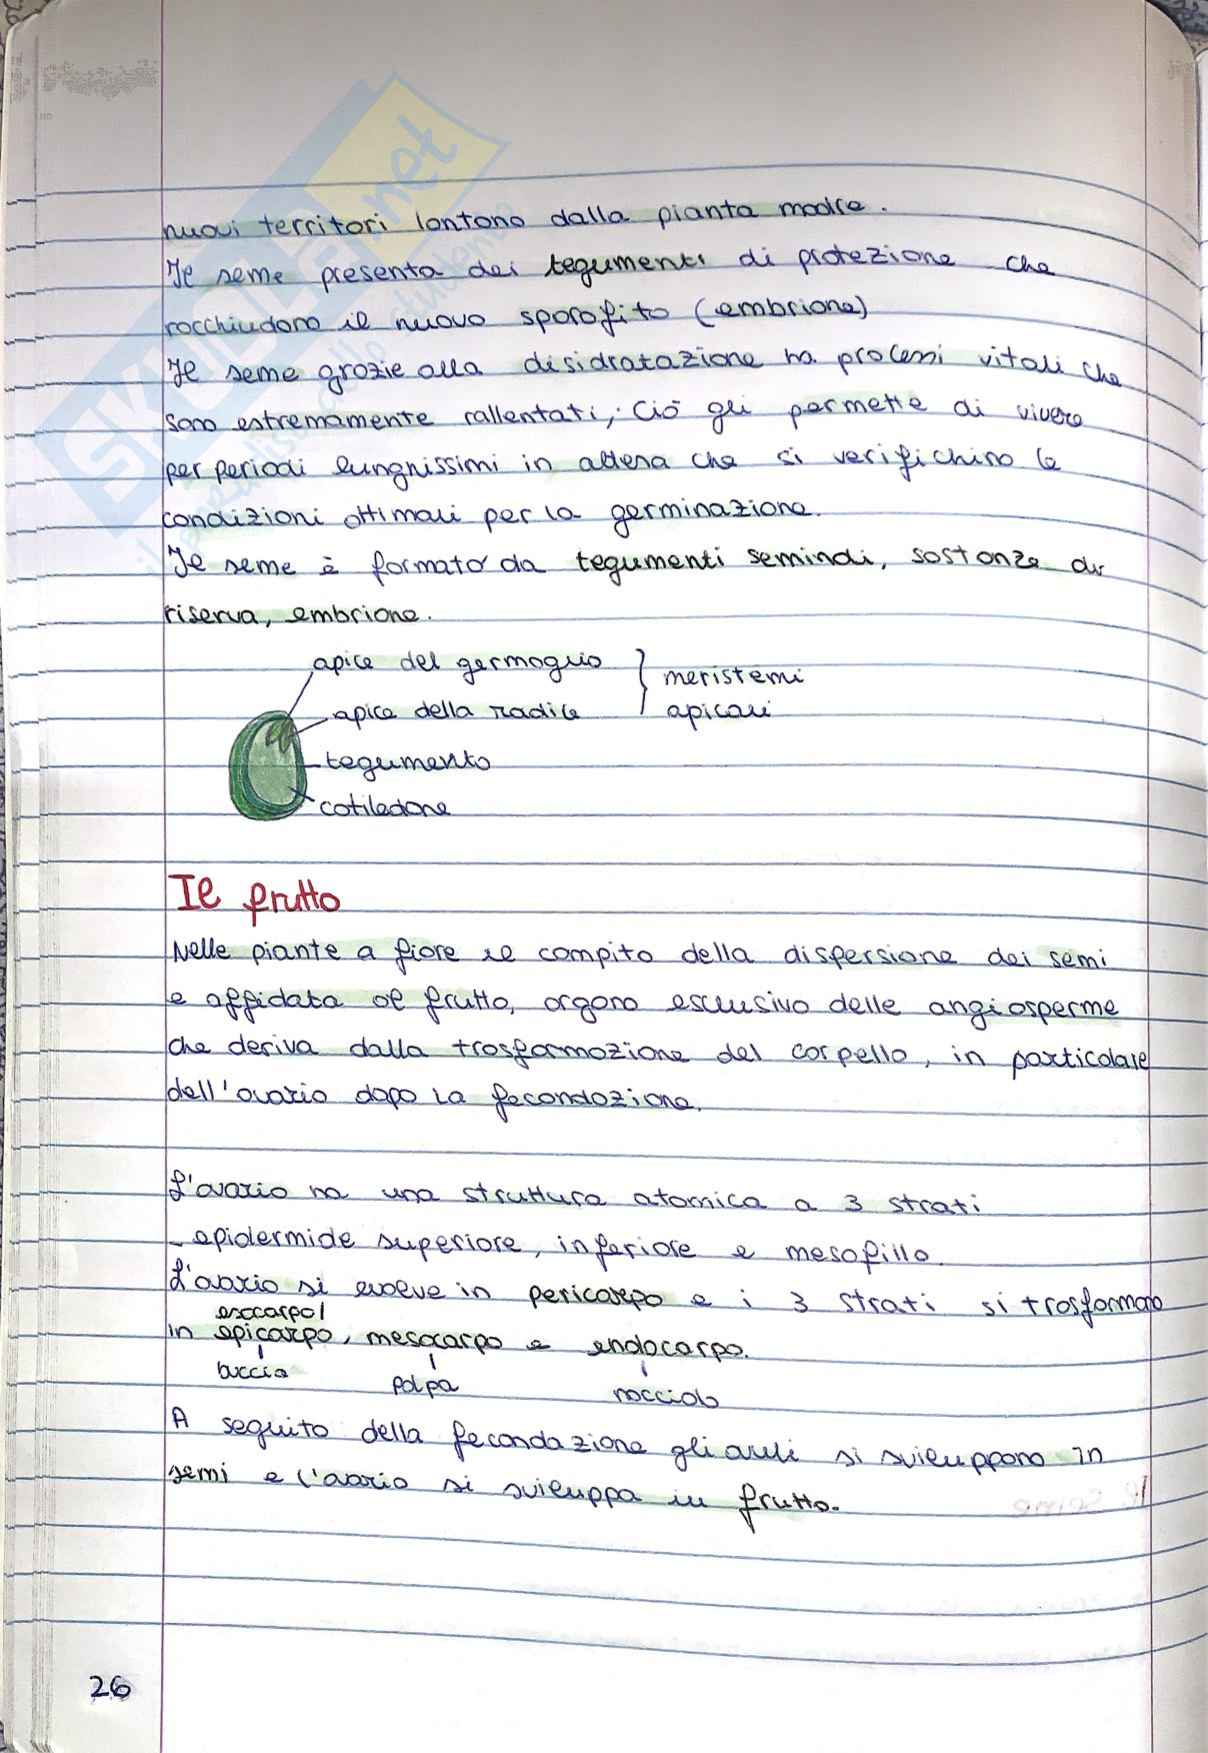 SKUOLA.net
il paradiso dello studente
nuovi territori lontano dalla pianta madre.
Il seme presenta dei tegumenti di protezione che
racchiudono il nuovo sporofito (embrione)
Il seme grazie alla disidratazione ha processi vitali che
sono estremamente rallentati, ciò gli permette di vivere
per periodi lunghissimi in attesa che si verifichino le
condizioni ottimali per la germinazione.
Il seme è formato da tegumenti seminali, sostanze di
riserva, embrione.
apice del germoglio } meristemi
apice della radice apicali
tegumento
cotiledone
Il frutto
Nelle piante a fiore il compito della dispersione dei semi
e affidata al frutto, organo esclusivo delle angiosperme
che deriva dalla trasformazione del carpello, in particolare
dell'ovario dopo la fecondazione.
L'ovario ha una struttura atomica a 3 strati
- epidermide superiore, inferiore e mesofillo.
L'ovario si evolve in pericarpo e i 3 strati si trasformano
esocarpo/
in epicarpo, mesocarpo e endocarpo.
buccia polpa nocciolo
A seguito della fecondazione gli ovuli si sviluppano in
semi e l'ovario si sviluppa in frutto.
26